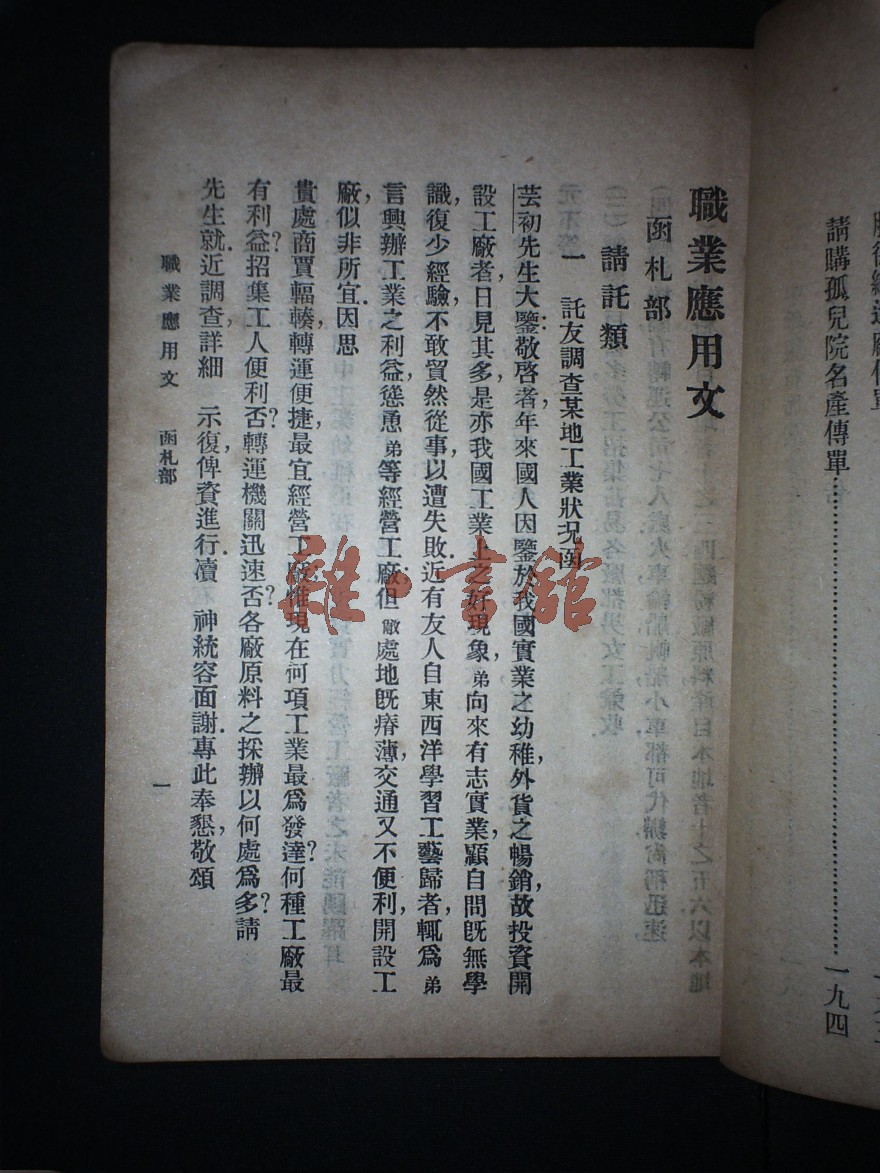 請購孤兒院名產傳單……………………一九四
職業應用文
函札部
請託類
一　託友調查某地工業狀況函
芸初先生大鑒：敬啓者，年來國人因鑒於我國實業之幼稚，外貨之暢銷，故投資開
設工廠者，日見其多，是亦我國工業上之好現象．弟向來有志實業，顧自問旣無學
識，復少經驗，不敢貿然從事，以遭失敗．近有友人自東西洋學習工藝歸者，輒爲弟
言興辦工業之利益，慫恿弟等經營工廠．但敝處地旣瘠薄，交通又不便利，開設工
廠，似非所宜．因思
貴處商賈輻輳，轉運便捷，最宜經營工廠．惟現在何項工業最爲發達？何種工廠最
有利益？招集工人便利否？轉運機關迅速否？各廠原料之採辦以何處爲多？請
先生就近調查詳細　示復，俾資進行．凟　神統容面謝．專此奉懇，敬頌
職業應用文　函札部
一
雜·書館